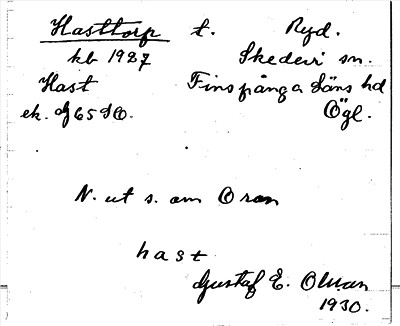 Hasttorp t. Ryd.
kb 1927 Skedevi sn.
Hast Finspånga läns hd
ek. 65 SO. Ögl.
N. ut s. om Oran
hast
Gustaf E. Olman
1930.